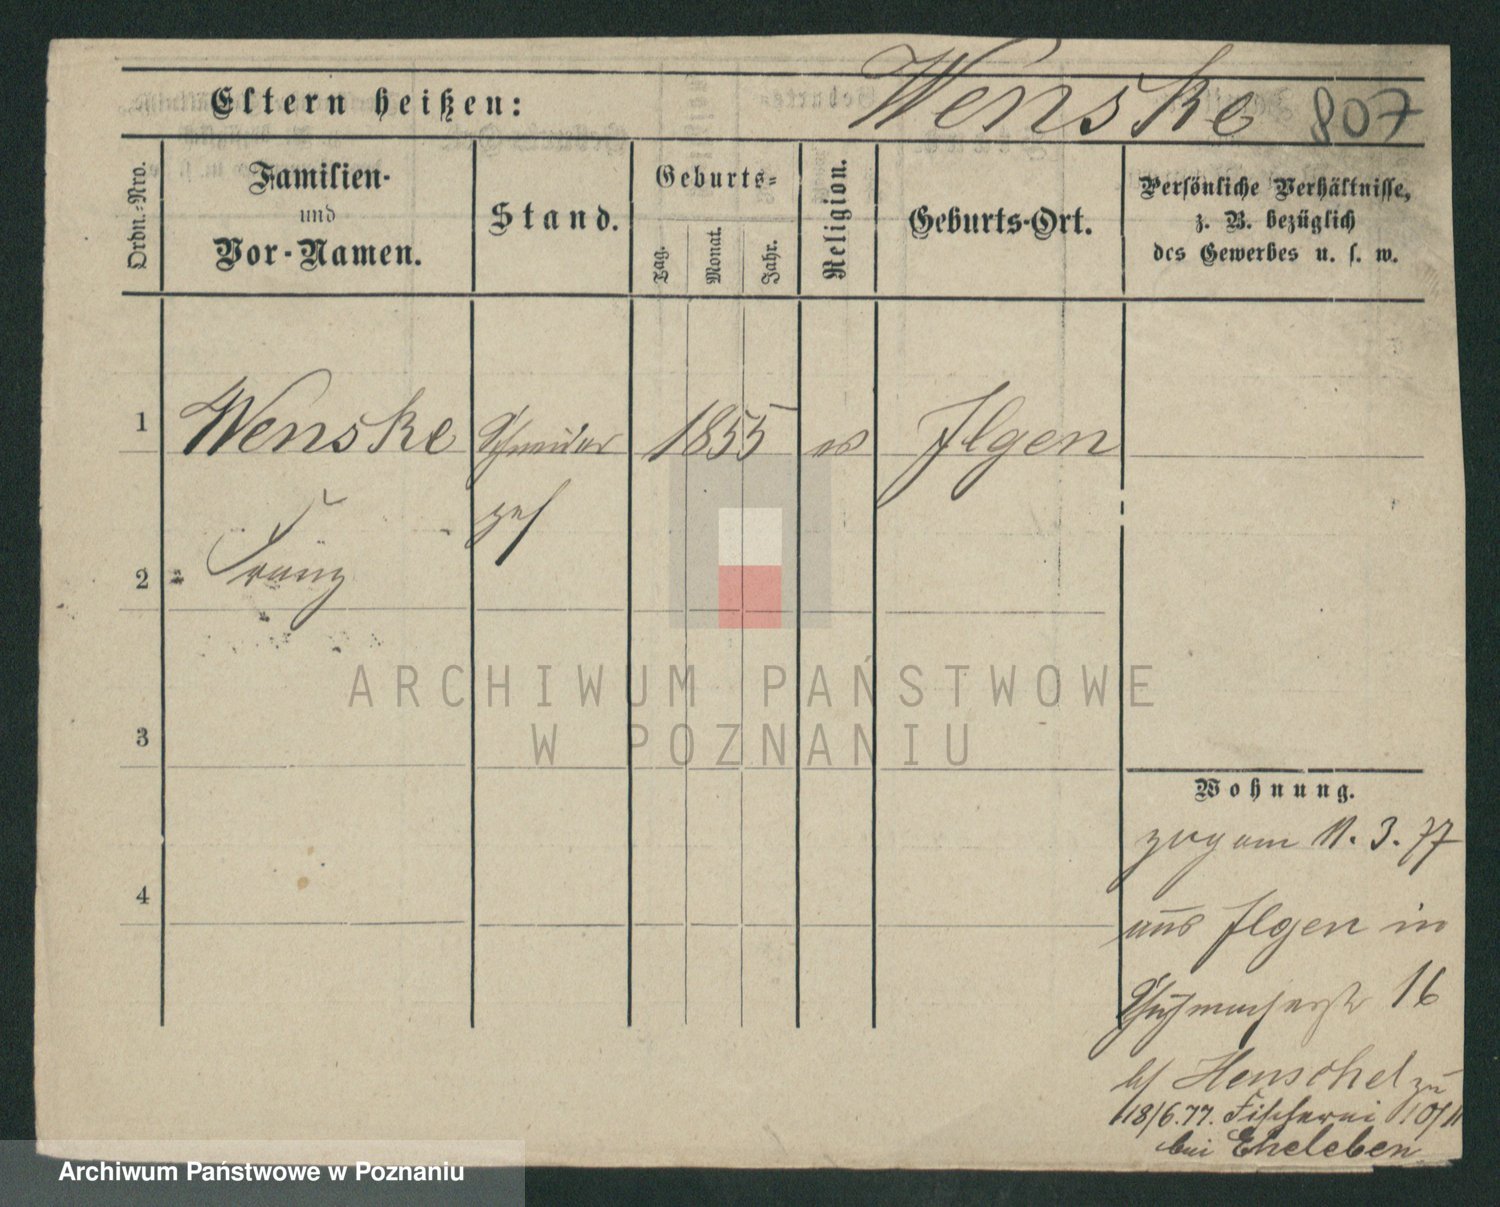 Eltern heißen: Wenske 807
Ordn.-Nro.
Familien-
und
Vor-Namen.
Stand.
Geburts-
Tag.
Monat.
Jahr.
Religion.
Geburts-Ort.
Persönliche Verhältnisse,
z. B. bezüglich
des Gewerbes u. s. w.
1 Wenske Schneider 1855 Ilgen
ges
2 Franz
3
4
ARCHIWUM PAŃSTWOWE
W POZNANIU
Wohnung.
zug am 11. 3. 77
aus Ilgen in
Schuhmacherstr 16
b/ Henschel
18/6.77. Fischerei 10/11
bei Eheleben
Archiwum Państwowe w Poznaniu